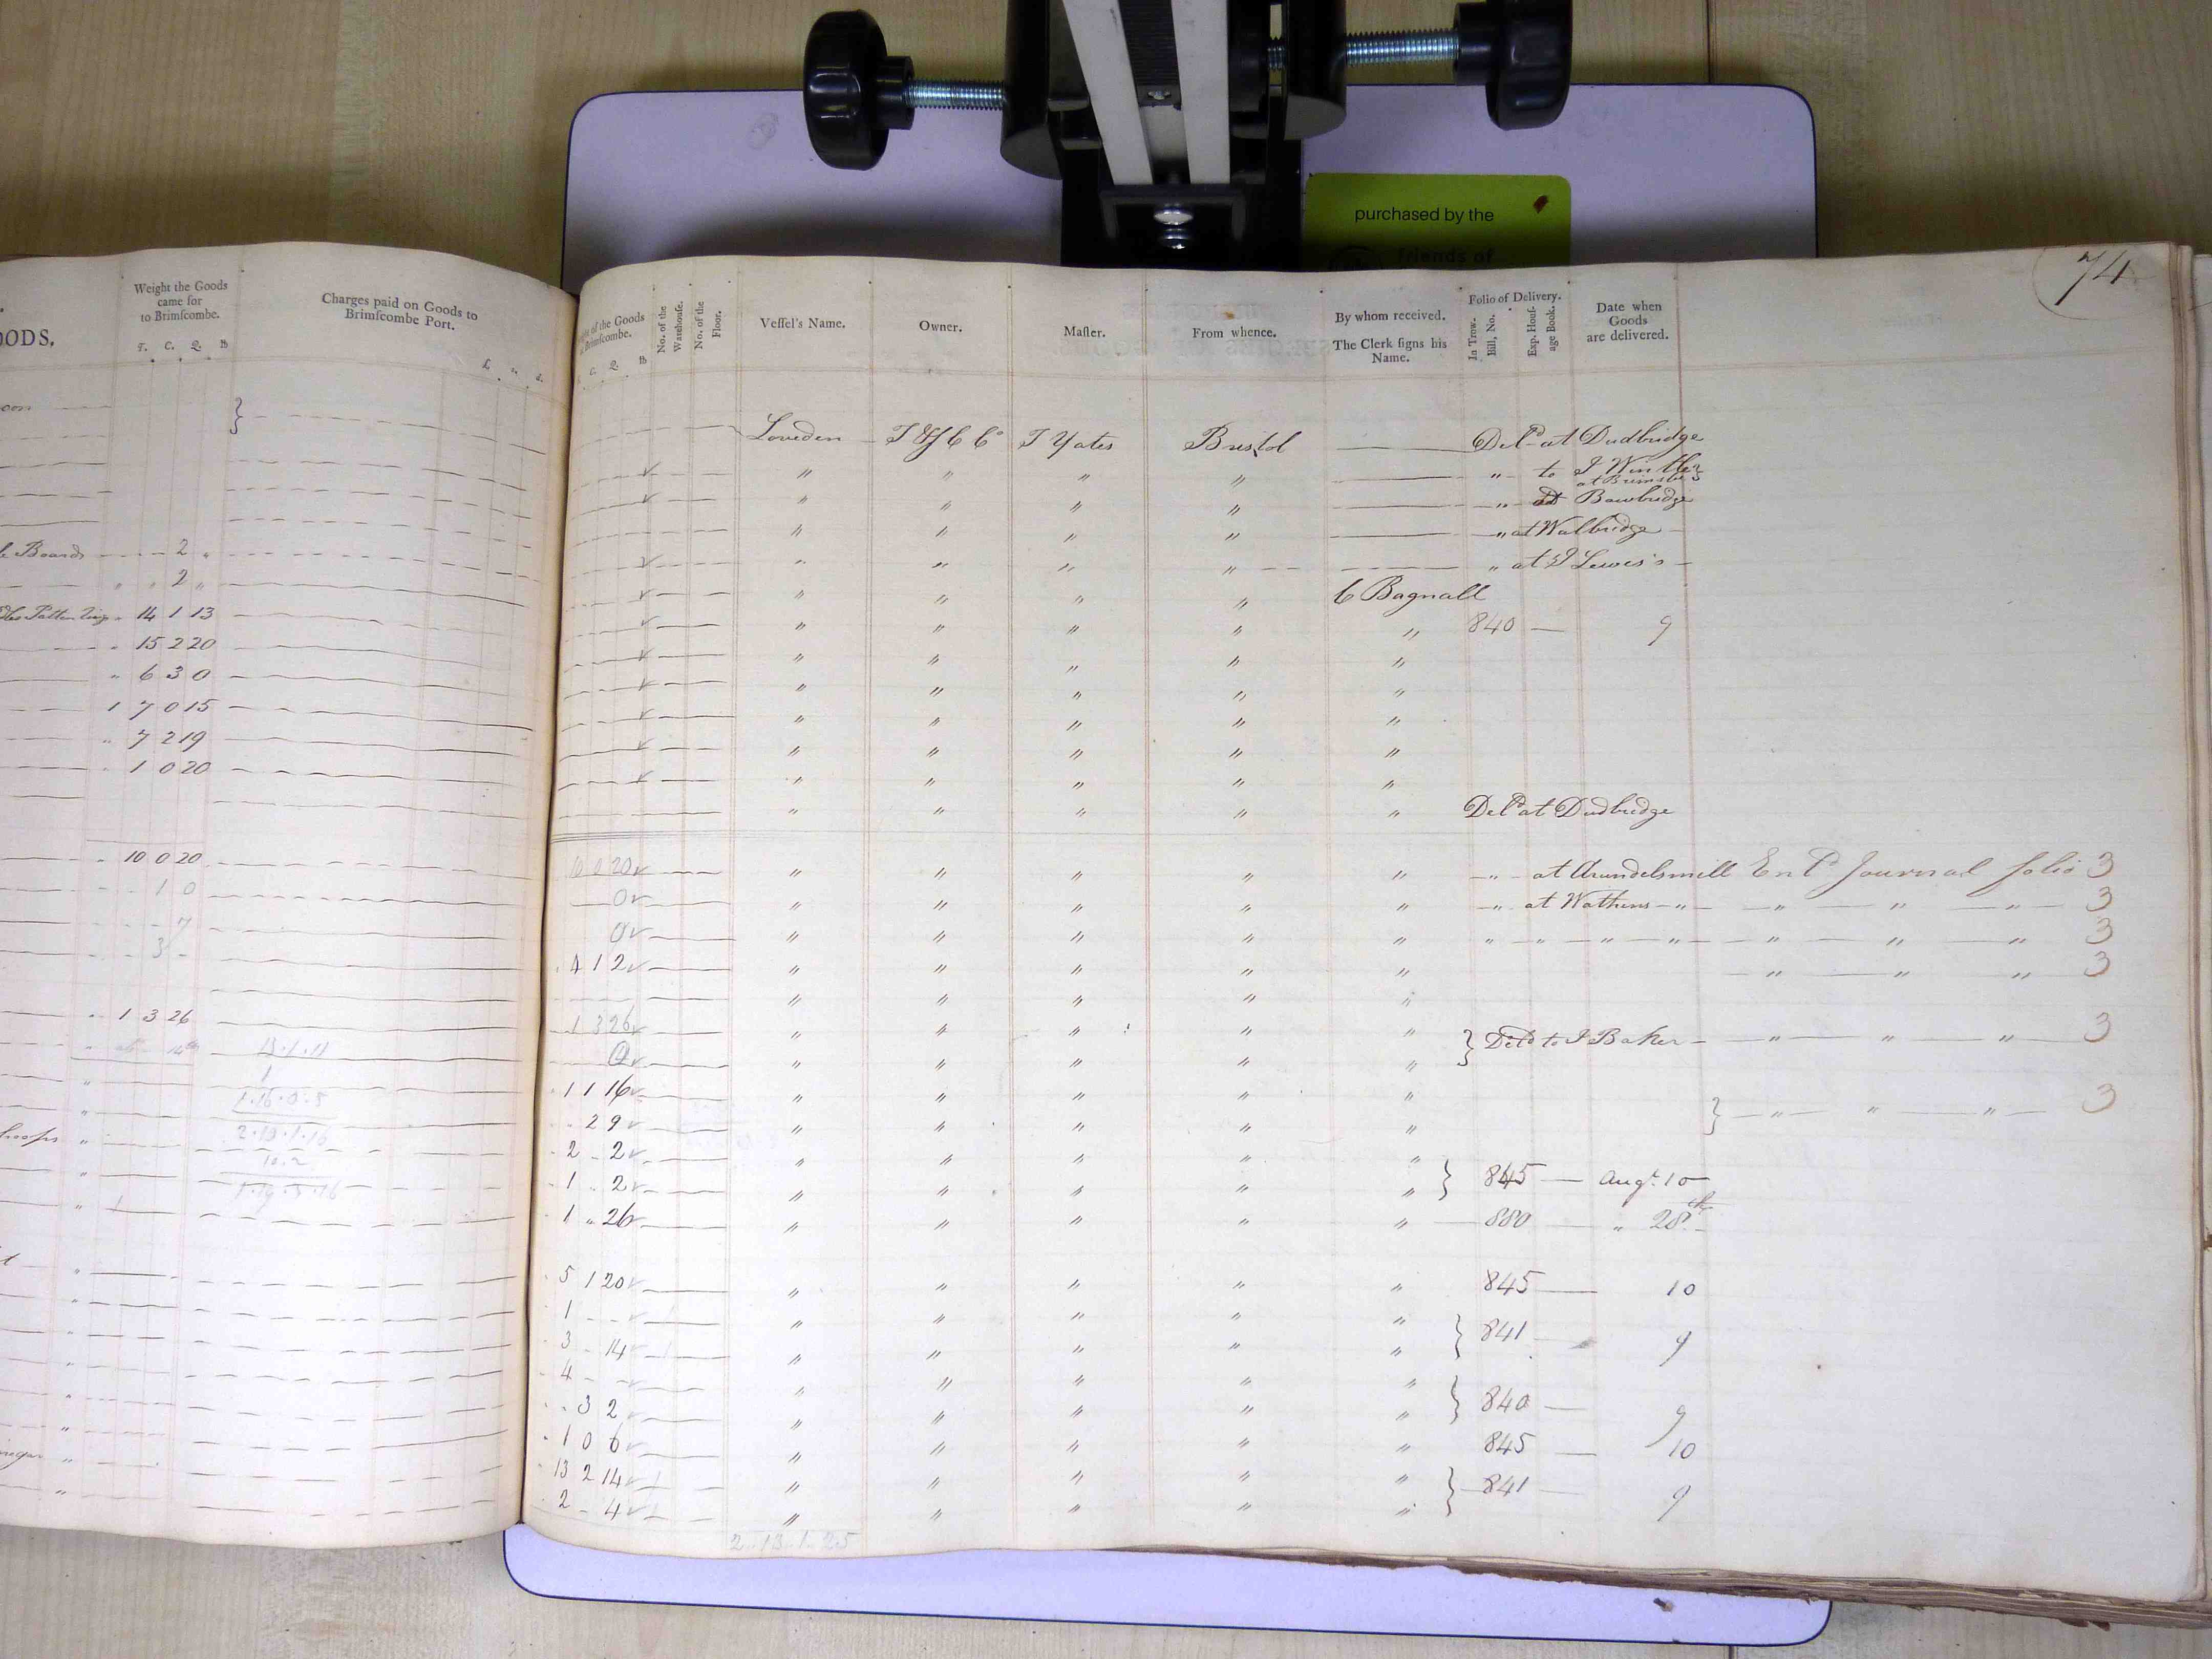 purchased by the
friends of
74
OODS.
Weight the Goods
came for
to Brimſcombe.
T. C. Q. lb
Charges paid on Goods to
Brimſcombe Port.
£. s. d.
of the Goods
Brimſcombe.
C. Q. lb
No. of the
Warehouſe.
No. of the
Floor.
Veſſel's Name.
Owner.
Maſter.
From whence.
By whom received.
The Clerk ſigns his
Name.
Folio of Delivery.
In Trow-
Bill, No.
Exp. Houſ-
age Book.
Date when
Goods
are delivered.
Loveden T & S C Co T Yates Bristol Deld at Dudbridge
" " " " " to J Wintle
at Brimsbe
" " " " " at Bowbridge
" " " " " at Walbridge
Boards 2 " " " " " " at J Lewis's
" " 2 " " " " " C Bagnall
" 14 1 13 " " " " " 840 9
" 15 2 20 " " " " "
" 6 3 0 " " " " "
1 7 0 15 " " " " "
" 7 2 19 " " " " "
" 1 0 20 " " " " "
" " " " " Deld at Dudbridge
" 10 0 20 10 0 20 " " " " " " at Arundelsmill Entd Journal folio 3
1 0 0 " " " " " " at Wathens " " " " 3
7 0 " " " " " " " " " " " " 3
3 4 1 2 " " " " " " " " 3
" " " " "
" 1 3 26 1 3 26 " " " " "
0 " " " " " } Deld to J Baker " " " 3
" 1 1 16 " " " " "
1.16.0.5
" 2 9 " " " " " } " " " 3
hoops " 2 2 " " " " "
" 1 2 " " " " " } 845 Augt. 10
" 1 " 26 " " " " " 880 " 28th
" 5 1 20 " " " " " 845 10
" 1 " " " " "
" 3 14 " " " " " } 841 9
" 4 " " " " "
" 3 2 " " " " " } 840 9
" 1 0 6 " " " " " 845 10
" 13 2 14 " " " " "
" 2 4 " " " " " } 841 9
2 13 1 25